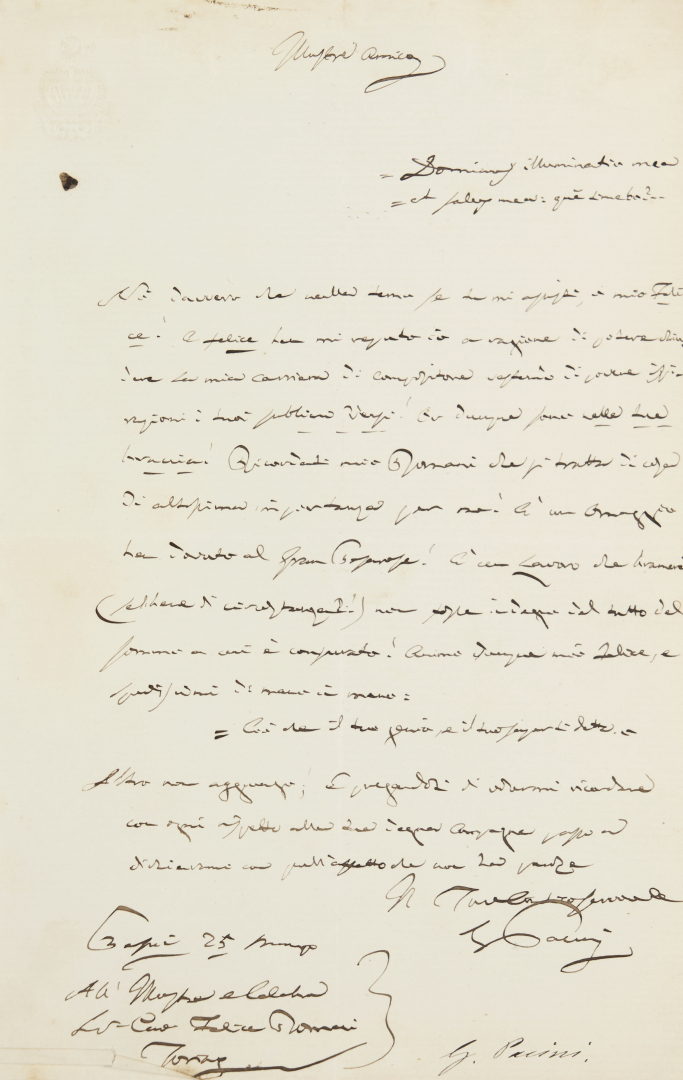 Illustre Amico
= Dominus illuminatio mea
= et salus mea: quem timebo?..
Nò davvero che nulla temo se tu mi assisti, o mio Feli-
ce! E felice ben mi reputo io a ragione di potere chiu
dere la mia carriera di compositore
i tuoi sublimi Versi! Or dunque sono nelle tue
braccia! Ricordati mio Romani che si tratta di cosa
di altissima importanza per me! È un Omaggio
ben dovuto al gran Pesarese! È un Lavoro che bramerei
(sebbene di circostanza!) non fosse indegno del tutto del
sommo a cui è consacrato! Animo dunque mio Felice, e
spediscimi di mano in mano:
= Ciò che il tuo genio, e il tuo saper ti detta. =
Altro non aggiungo! E pregandoti di volermi ricordare
con ogni rispetto alla tua degna Compagna passo a
dichiararmi con quell'affetto che non ha
Il Tuo
G Pacini
25
All' Illustre e Celebre
Sigr Cav Felice Romani
Torino
G. Pacini.